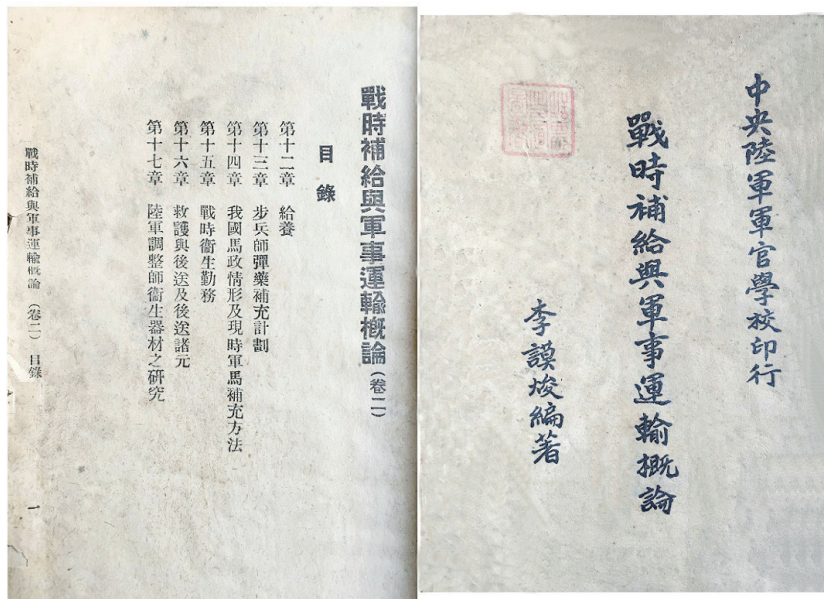 中央陸軍軍官學校印行
戰時補給與軍事運輸概論
李謨焌編著
戰時補給與軍事運輸概論(卷二)
目錄
第十二章 給養
第十三章 步兵師彈藥補充計劃
第十四章 我國馬政情形及現時軍馬補充方法
第十五章 戰時衛生勤務
第十六章 救護與後送及後送諸元
第十七章 陸軍調整師衛生器材之研究
戰時補給與軍事運輸概論 (卷二) 目錄
一